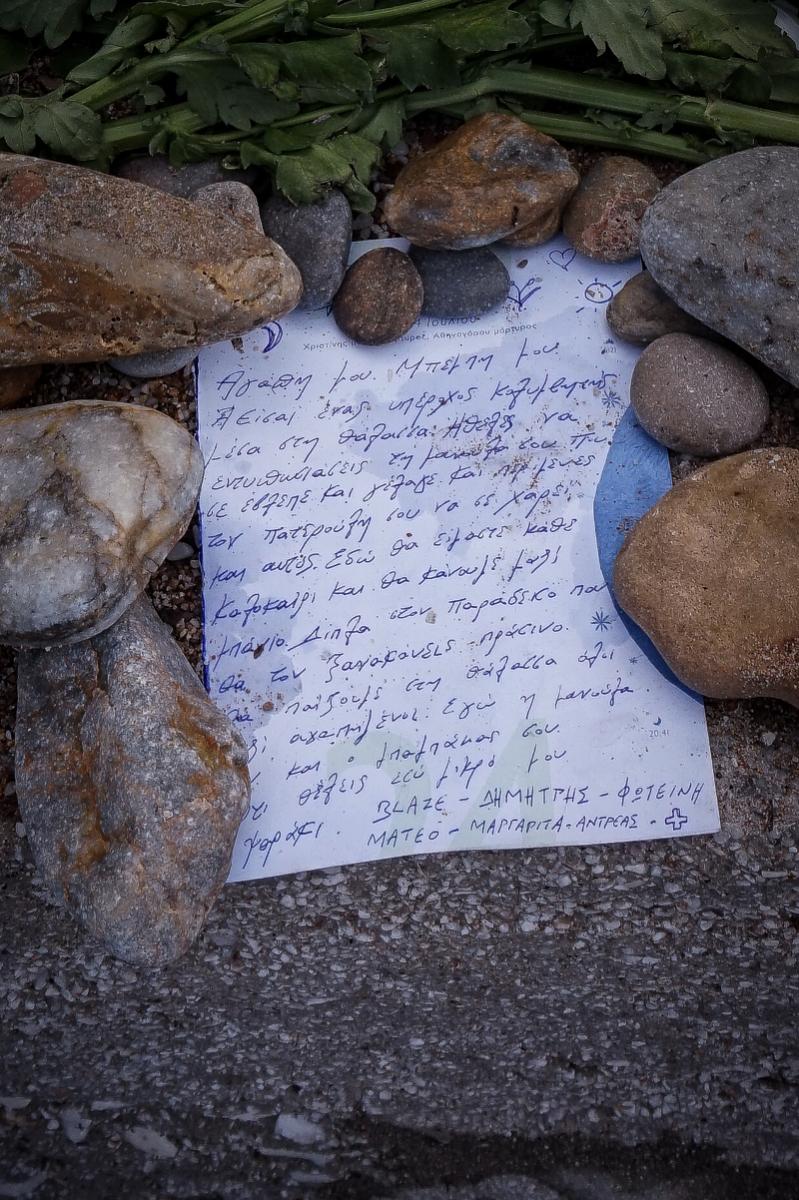 Ιουλίου
Αθηναγόρου μάρτυρος
Αγάπη μου. Μπέμπη μου
Είσαι ένας υπέροχος κολυμβητής
μέσα στη θάλασσα. Ήθελες να
ενθουσιάσεις τη μανούλα σου που
σε έβλεπε και γέλαγε και περίμενες
τον πατερούλη σου να σε χαρεί
και αυτός. Εδώ θα είμαστε κάθε
καλοκαίρι και θα κάνουμε μαζί
μπάνιο. Δίπλα στον Παράδεισο που
θα τον ζαναφανείς πράσινο.
Θα παίζουμε στη θάλασσα όλοι
αγαπημένοι. Εγώ η μανούλα
και ο μπαμπάκας σου.
ότι θέλεις εσύ μικρό μου
ψαράκι. BLAZE - ΔΗΜΗΤΡΗΣ - ΦΩΤΕΙΝΗ
ΜΑΤΕΟ - ΜΑΡΓΑΡΙΤΑ - ΑΝΤΡΕΑΣ -
20:41